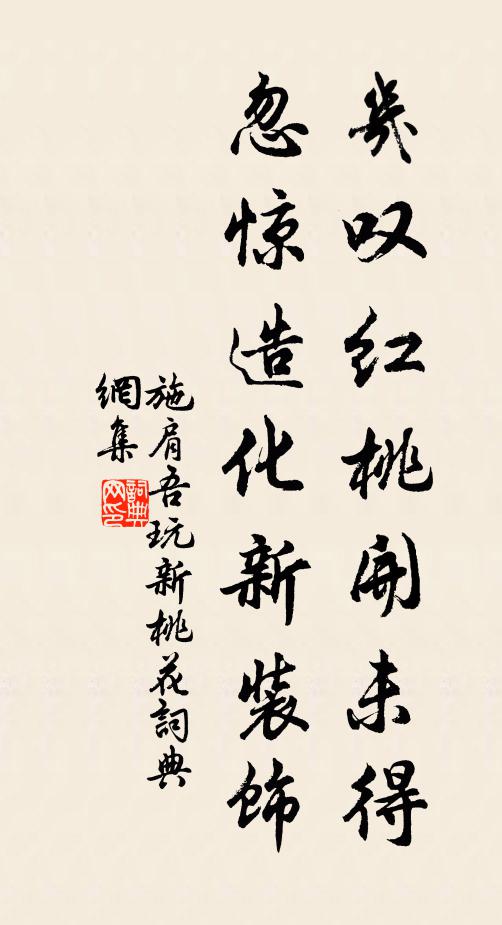 几叹红桃开未得
忽惊造化新装饰
施肩吾玩新桃花詞典
網集
詞典
网印